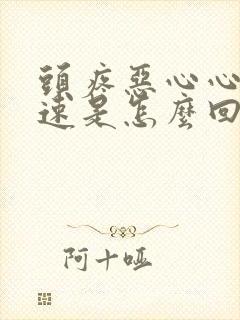 頭疼惡心心
速是怎麼回
阿十啞